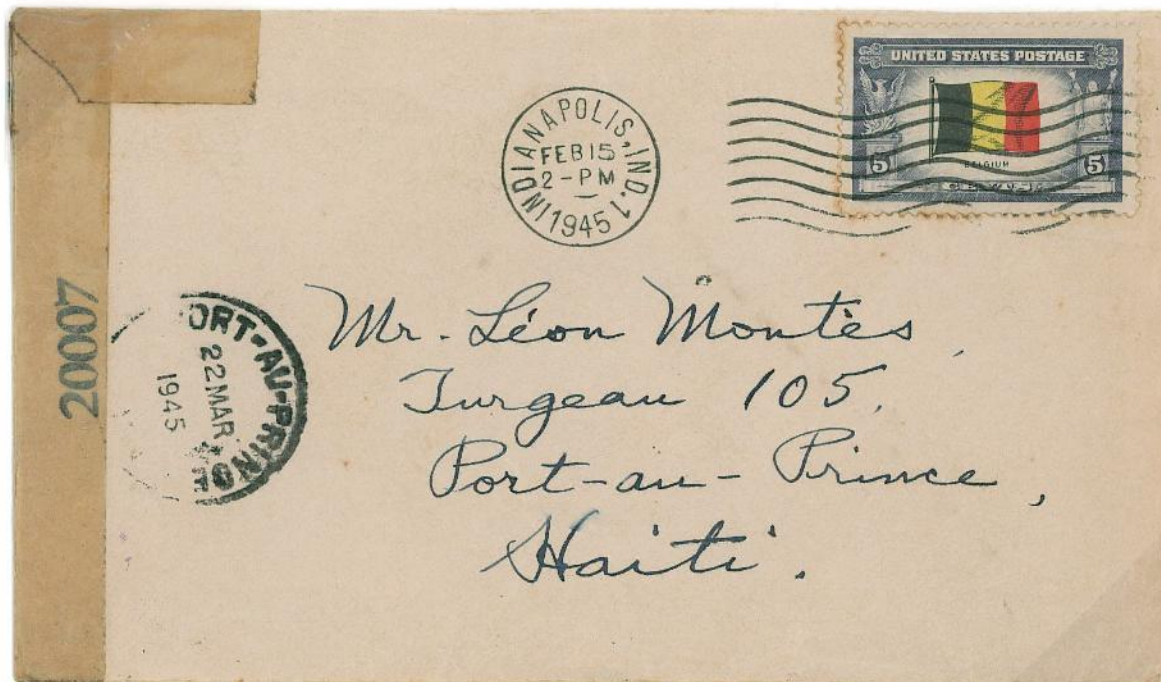 UNITED STATES POSTAGE
BELGIUM
5¢ 5¢
INDIANAPOLIS, IND. 1
FEB 15
2-PM
1945
20007
PORT-AU-PRINCE
22 MAR
1945
Mr. Léon Montès,
Turgeau 105.
Port-au-Prince,
Haïti.